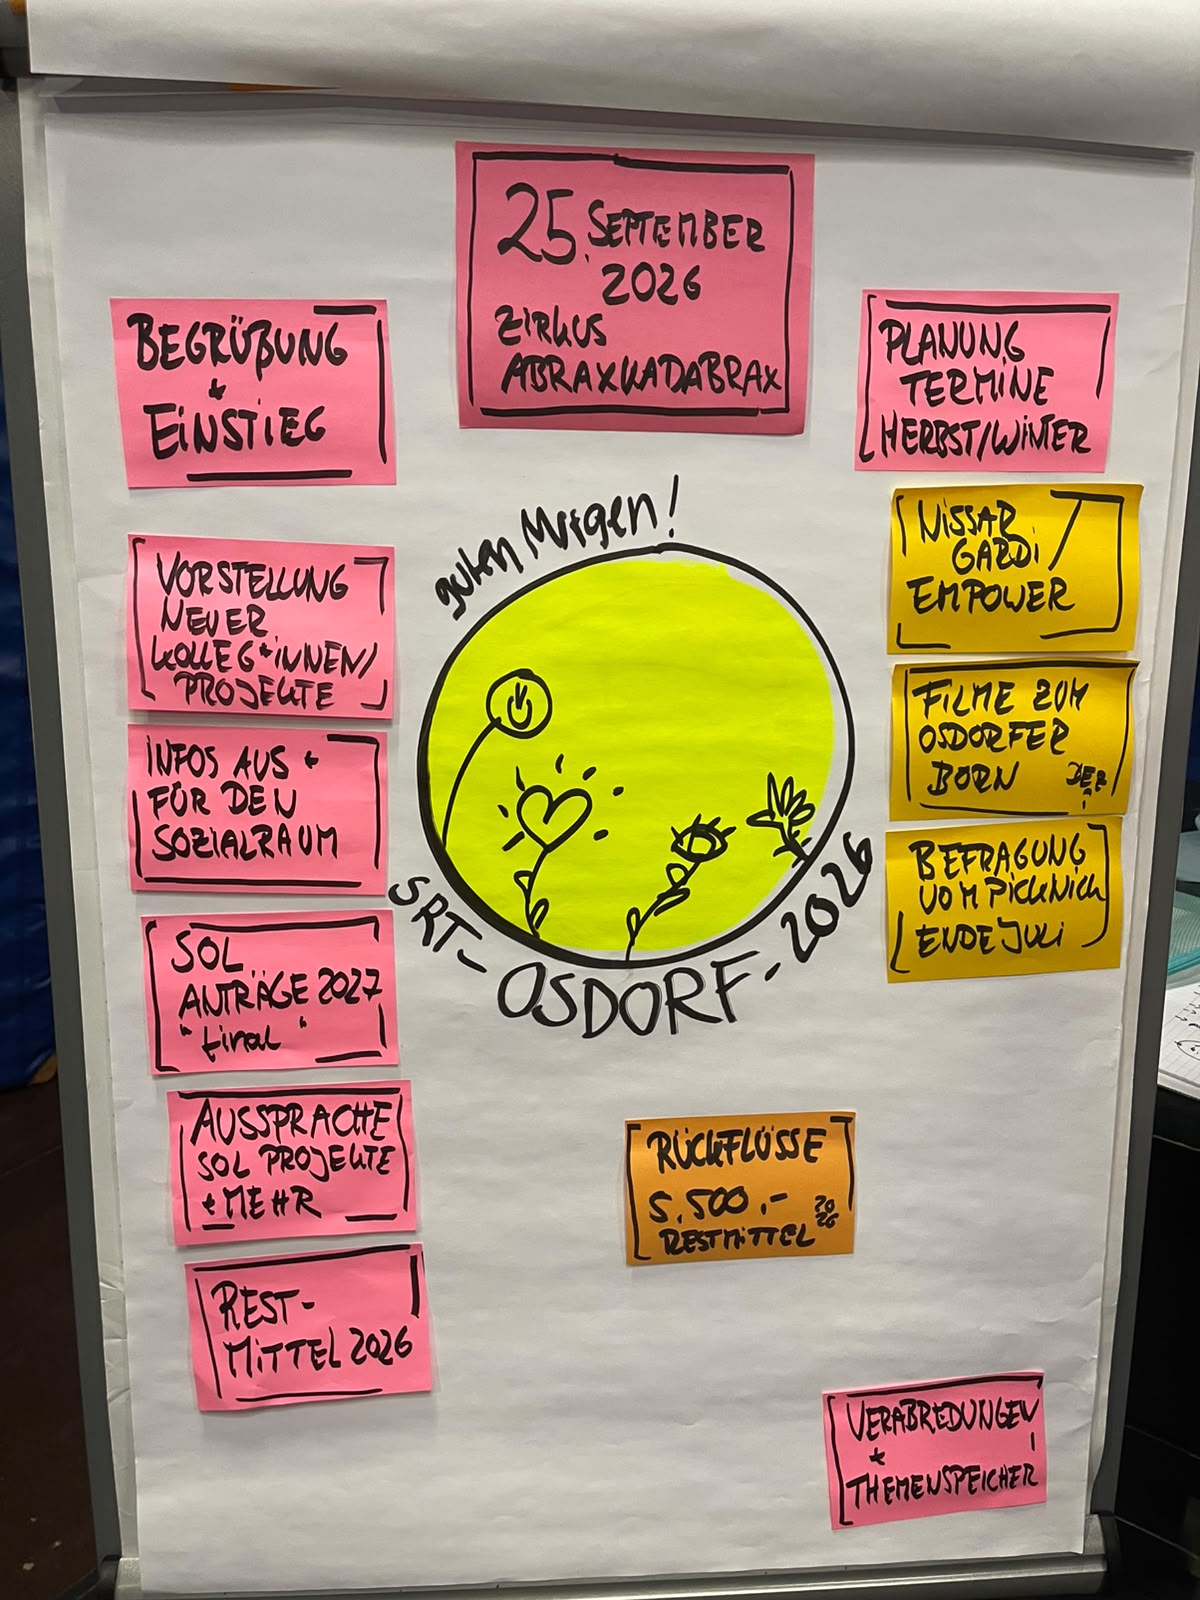 25. SEPTEMBER
2026
ZIRKUS
ABRAXKADABRAX
BEGRÜßUNG
+
EINSTIEG
VORSTELLUNG
NEUER
KOLLEG*INNEN/
PROJEKTE
INFOS AUS +
FÜR DEN
SOZIALRAUM
SOL
ANTRÄGE 2027
"final"
AUSSPRACHE
SOL PROJEKTE
+ MEHR
REST-
MITTEL 2026
guten Morgen!
SRT-OSDORF-2026
RÜCKFLÜSSE
5.500,-
RESTMITTEL 2026
PLANUNG
TERMINE
HERBST/WINTER
NISSAR
GARDI /
EMPOWER
FILME ZUM
OSDORFER
BORN
BEFRAGUNG
VOM PICKNICK
ENDE JULI
VERABREDUNGEN
+
THEMENSPEICHER